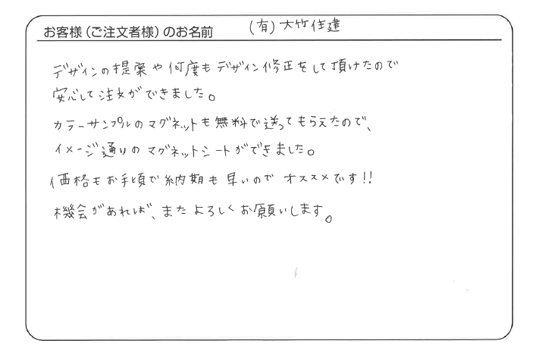 お客様（ご注文者様）のお名前 (有)大竹住建
デザインの提案や何度もデザイン修正をして頂けたので
安心して注文ができました。
カラーサンプルのマグネットも無料で送ってもらえたので、
イメージ通りのマグネットシートができました。
価格もお手頃で納期も早いのでオススメです!!
機会があれば、またよろしくお願いします。